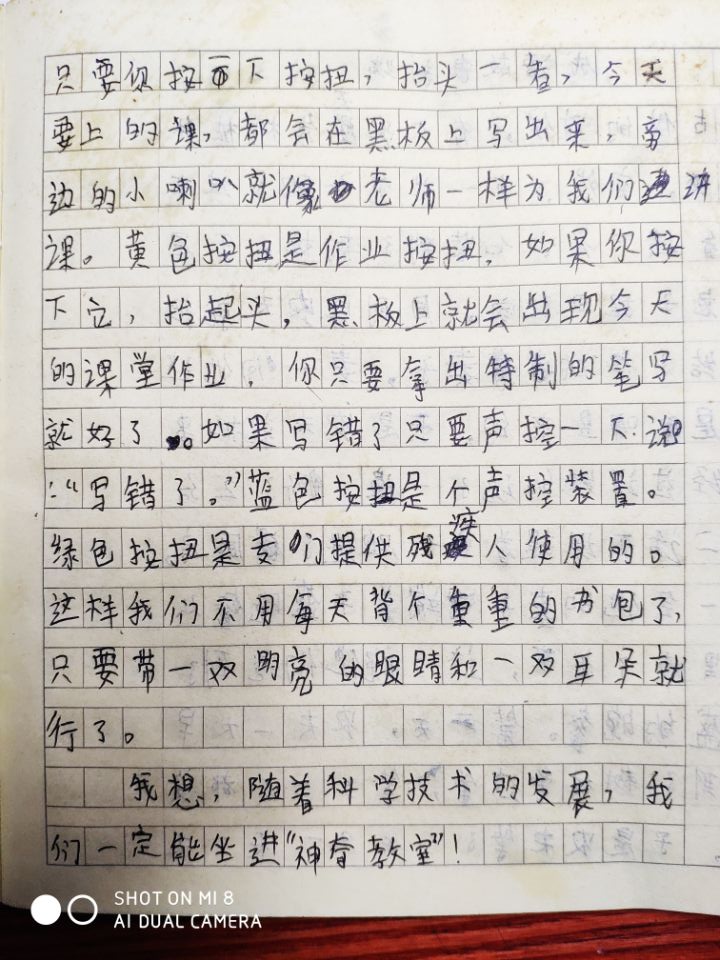 只要你按一下按扭，抬头一看，今天
要上的课，都会在黑板上写出来，旁
边的小喇叭就像老师一样为我们讲
课。黄色按扭是作业按扭，如果你按
下它，抬起头，黑板上就会出现今天
的课堂作业，你只要拿出特制的笔写
就好了。如果写错了只要声控一下说
：“写错了。”蓝色按扭是个声控装置。
绿色按扭是专门提供残疾人使用的。
这样我们不用每天背个重重的书包了，
只要带一双明亮的眼睛和一双耳朵就
行了。
我想，随着科学技术的发展，我
们一定能坐进“神奇教室”！
SHOT ON MI 8
AI DUAL CAMERA